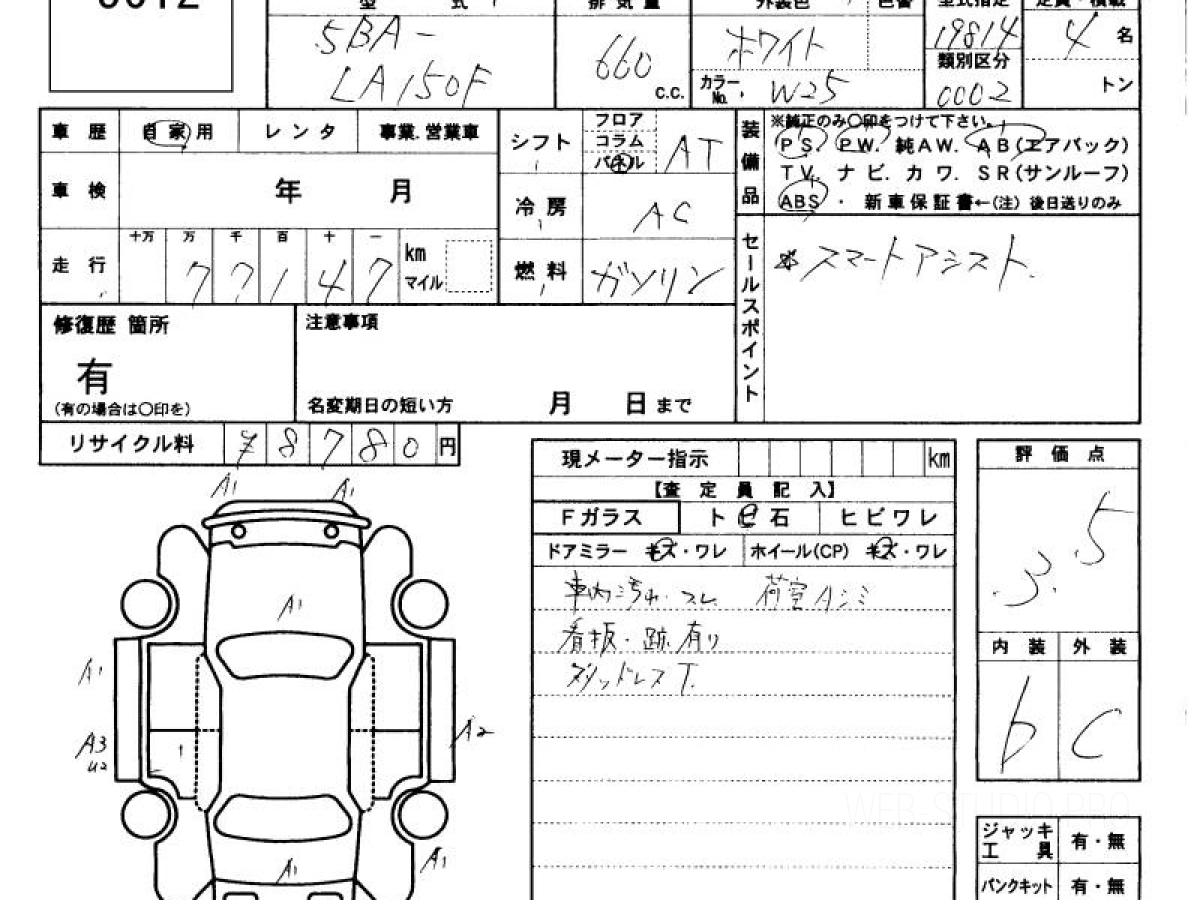 型 式
5BA-
LA150F
排気量
660
C.C.
外装色
ホワイト
色番
カラーNo. W25
型式指定
19814
類別区分
0002
定員・積載
4 名
トン
車歴 自家用 レンタ 事業.営業車
車検 年 月
走行 十万 万 千 百 十 一
7 7 1 4 7
km
マイル
シフト フロア
コラム
パネル
AT
冷房 AC
燃料 ガソリン
装備品
※純正のみ〇印をつけて下さい。
PS. PW. 純AW. AB(エアバック)
TV. ナビ. カワ. SR(サンルーフ)
ABS ・ 新車保証書←(注) 後日送りのみ
セールスポイント
* スマートアシスト.
修復歴 箇所
有
(有の場合は〇印を)
注意事項
名変期日の短い方 月 日まで
リサイクル料 ¥ 8 7 8 0 円
現メーター指示 km
【査定員記入】
Fガラス トビ石 ヒビワレ
ドアミラー キズ・ワレ ホイール(CP) キズ・ワレ
車内汚れ・スレ 荷室Aシミ
看板・跡有り
スタッドレスT.
評価点
3.5
内装 外装
b C
A1 A1
A1
A1
A3
U2
A2
A1
A1
ジャッキ
工具 有・無
パンクキット 有・無
WEB STUDIO PRO